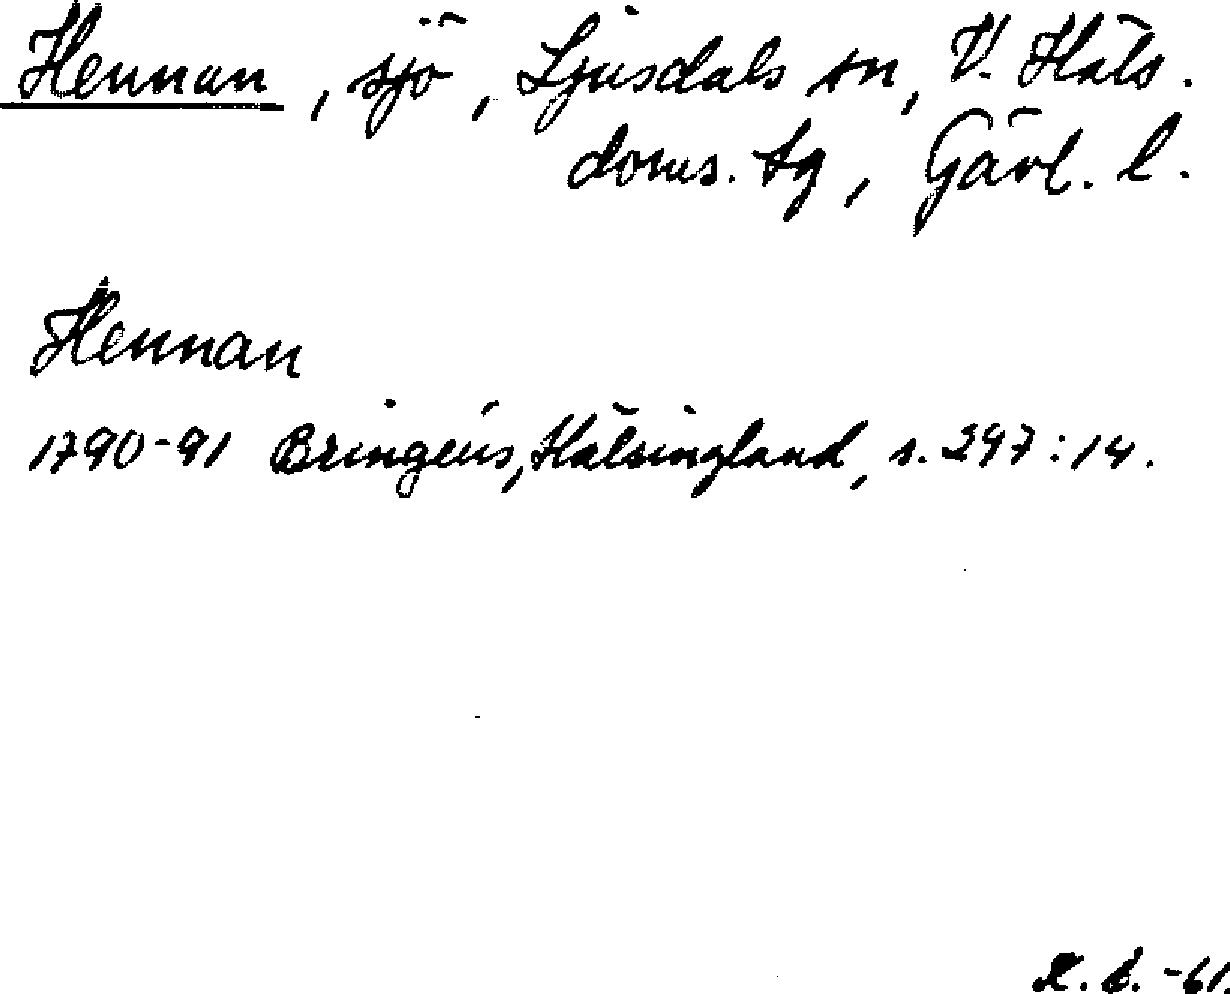 Hennan, sjö, Ljusdals sn, V. Häls.
doms. tg, Gävl. l.
Hennan
1790-91 Bringéus, Hälsingland, s. 297:14.
-61.